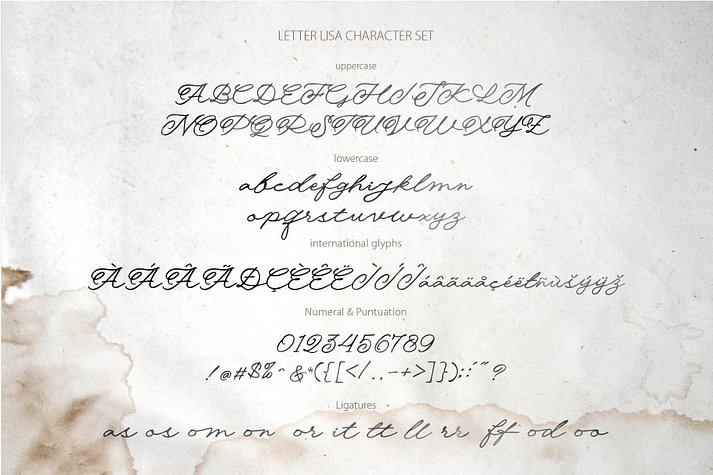 LETTER LISA CHARACTER SET
uppercase
ABCDEFGHIJKLM
NOPQRSTUVWXYZ
lowercase
abcdefghijklmn
opqrstuvwxyz
international glyphs
ÀÁÂÃÐÇÈÊËÌÍÎáâãäåçéëłñùšýÿž
Numeral & Puntuation
0123456789
!@#$%^&*({[</..-+>]}):;'"?
Ligatures
as os om on or it tt ll rr ff od oo